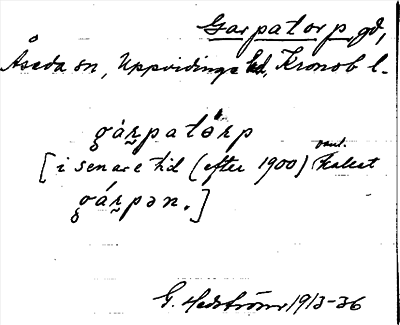 Garpatorp, gd,
Åseda sn, Uppvidinge hd, Kronob l.
gárpatǫ̈rp
[i senare tid (efter 1900) vanl. kallat
gárpən.]
G. Hedström 1913-36